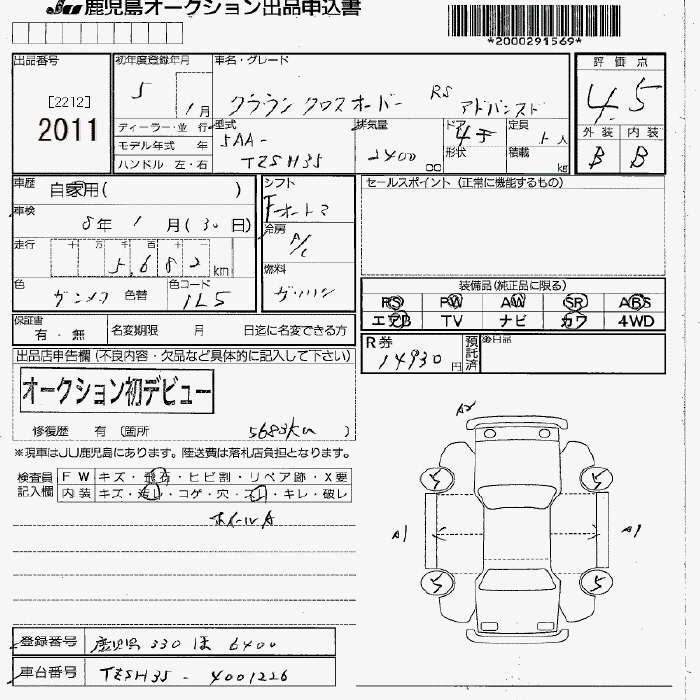 JU 鹿児島オークション出品申込書
*2000291569*
出品番号
[2212]
2011
初年度登録年月
5 1月
ディーラー・並 行
モデル年式 年
ハンドル 左・右
車名・グレード
クラウン クロスオーバー RS アドバンスド
型式
5AA-
TZSH35
排気量
2400 cc
ドア 4 ドア
形状
定員 5 人
積載 kg
評 価 点
4.5
外 装 内 装
B B
車歴 自家用( )
車検 8 年 1 月 (30 日)
走行 十 万 千 百 十
5,682 km
色 ガンメタ 色替
色コード 1L5
シフト
F オートマ
冷房
A/C
燃料
ガソリン
セールスポイント (正常に機能するもの)
装備品(純正品に限る)
PS PW AW SR ABS
エアB TV ナビ カワ 4WD
保証書
有 ・ 無
名変期限 月 日迄に名変できる方
R券
14930 円
預託済
後日品
出品店申告欄(不良内容・欠品など具体的に記入して下さい)
オークション初デビュー
修復歴 有 (箇所 5683km )
※現車はJU鹿児島にあります。陸送費は落札店負担となります。
検査員記入欄
F W キズ・飛石・ヒビ割・リペア跡・X要
内 装 キズ・汚レ・コゲ・穴・スレ・キレ・破レ
ホイールA
A2
5 5
A1 A1
5 5
登録番号 鹿児島 330 ほ 6400
車台番号 TZSH35 - 4001226